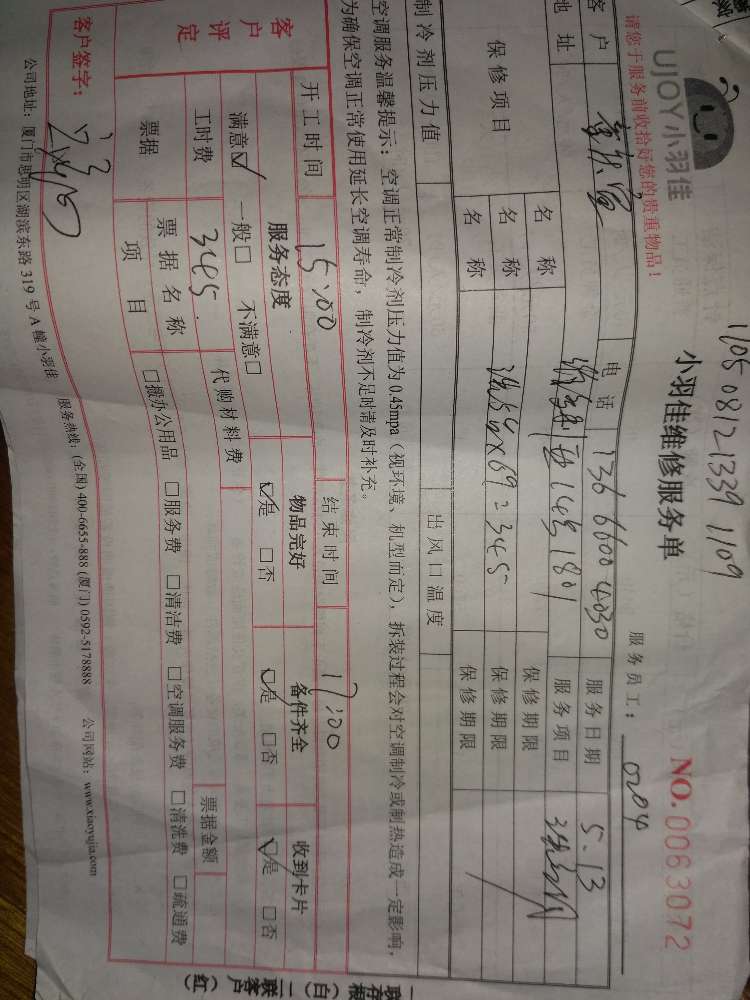 1105 08121339 1109
UJOY小羽佳
小羽佳维修服务单
NO.0063072
请您于服务前收拾好您的贵重物品!
服务员工: 0204
客户 电话 136 6600 4030 服务日期 5.13
地址 14号1801 服务项目
保修项目 名称 保修期限
名称 洗 5台×69=345 保修期限
名称 保修期限
制冷剂压力值 出风口温度
空调服务温馨提示:空调正常制冷剂压力值为0.45mpa(视环境、机型而定),拆装过程会对空调制冷或制热造成一定影响,
为确保空调正常使用延长空调寿命,制冷剂不足时请及时补充。
开工时间 15:00 结束时间 17:00
客户评定 服务态度 物品完好 备件齐全 收到卡片
满意☑ 一般□ 不满意□ ☑是 □否 ☑是 □否 ☑是 □否
工时费 345. 代购材料费
票据 票据名称 票据金额
项目 □搬办公用品 □服务费 □清洁费 □空调服务费 □清洗费 □疏通费
客户签字:
公司地址:厦门市思明区湖滨东路319号A幢小羽佳 服务热线:(全国)400-6655-888 (厦门)0592-5178888 公司网站:www.xiaoyujia.com
一联存根(白) 二联客户(红)